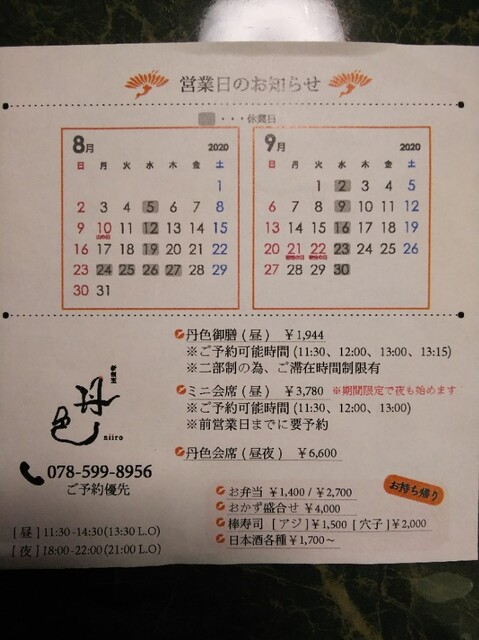 営業日のお知らせ
・・・休業日
8月 2020
日 月 火 水 木 金 土
1
2 3 4 5 6 7 8
9 10 11 12 13 14 15
山の日
16 17 18 19 20 21 22
23 24 25 26 27 28 29
30 31
9月 2020
日 月 火 水 木 金 土
1 2 3 4 5
6 7 8 9 10 11 12
13 14 15 16 17 18 19
20 21 22 23 24 25 26
敬老の日 秋分の日
27 28 29 30
丹色御膳(昼) ¥1,944
※ご予約可能時間(11:30、12:00、13:00、13:15)
※二部制の為、ご滞在時間制限有
ミニ会席(昼) ¥3,780 ※期間限定で夜も始めます
※ご予約可能時間(11:30、12:00、13:00)
※前営業日までに要予約
丹色会席(昼夜) ¥6,600
丹色
niiro
078-599-8956
ご予約優先
[昼]11:30-14:30(13:30 L.O)
[夜]18:00-22:00(21:00 L.O)
お持ち帰り
お弁当 ¥1,400 / ¥2,700
おかず盛合せ ¥4,000
棒寿司 [アジ]¥1,500 [穴子]¥2,000
日本酒各種 ¥1,700～